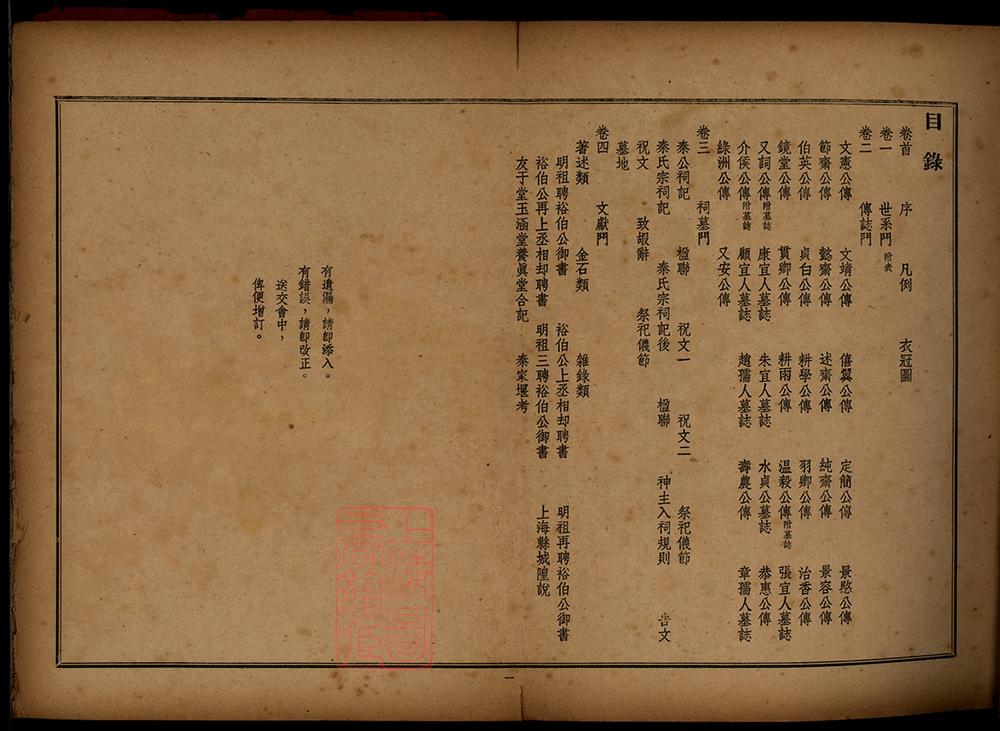 目錄
卷首 序 凡例 衣冠圖
卷一 世系門 附表
卷二 傳誌門
文憲公傳 文靖公傳 僖翼公傳 定簡公傳 景愍公傳
節齋公傳 懿齋公傳 述齋公傳 純齋公傳 景容公傳
伯英公傳 貞白公傳 耕學公傳 羽卿公傳 治香公傳
鏡堂公傳 貫卿公傳 耕雨公傳 溫毅公傳附墓誌 張宜人墓誌
又詞公傳附墓誌 康宜人墓誌 朱宜人墓誌 水貞公墓誌 恭惠公傳
介侯公傳附墓誌 顧宜人墓誌 趙孺人墓誌 壽農公傳 章孺人墓誌
綠洲公傳 又安公傳
卷三 祠墓門
秦公祠記 楹聯 祝文一 祝文二 祭祀儀節
秦氏宗祠記 秦氏宗祠記後 楹聯 神主入祠規則 告文
祝文 致嘏辭 祭祀儀節
墓地
卷四 文獻門
著述類 金石類 雜錄類
明祖聘裕伯公御書 裕伯公上丞相却聘書 明祖再聘裕伯公御書
裕伯公再上丞相却聘書 明祖三聘裕伯公御書 上海縣城隍說
友于堂玉涵堂養眞堂合記 秦家堰考
有遺漏，請卽添入。
有錯誤，請卽改正。
送交會中，
俾便增訂。
上海圖書館藏
一